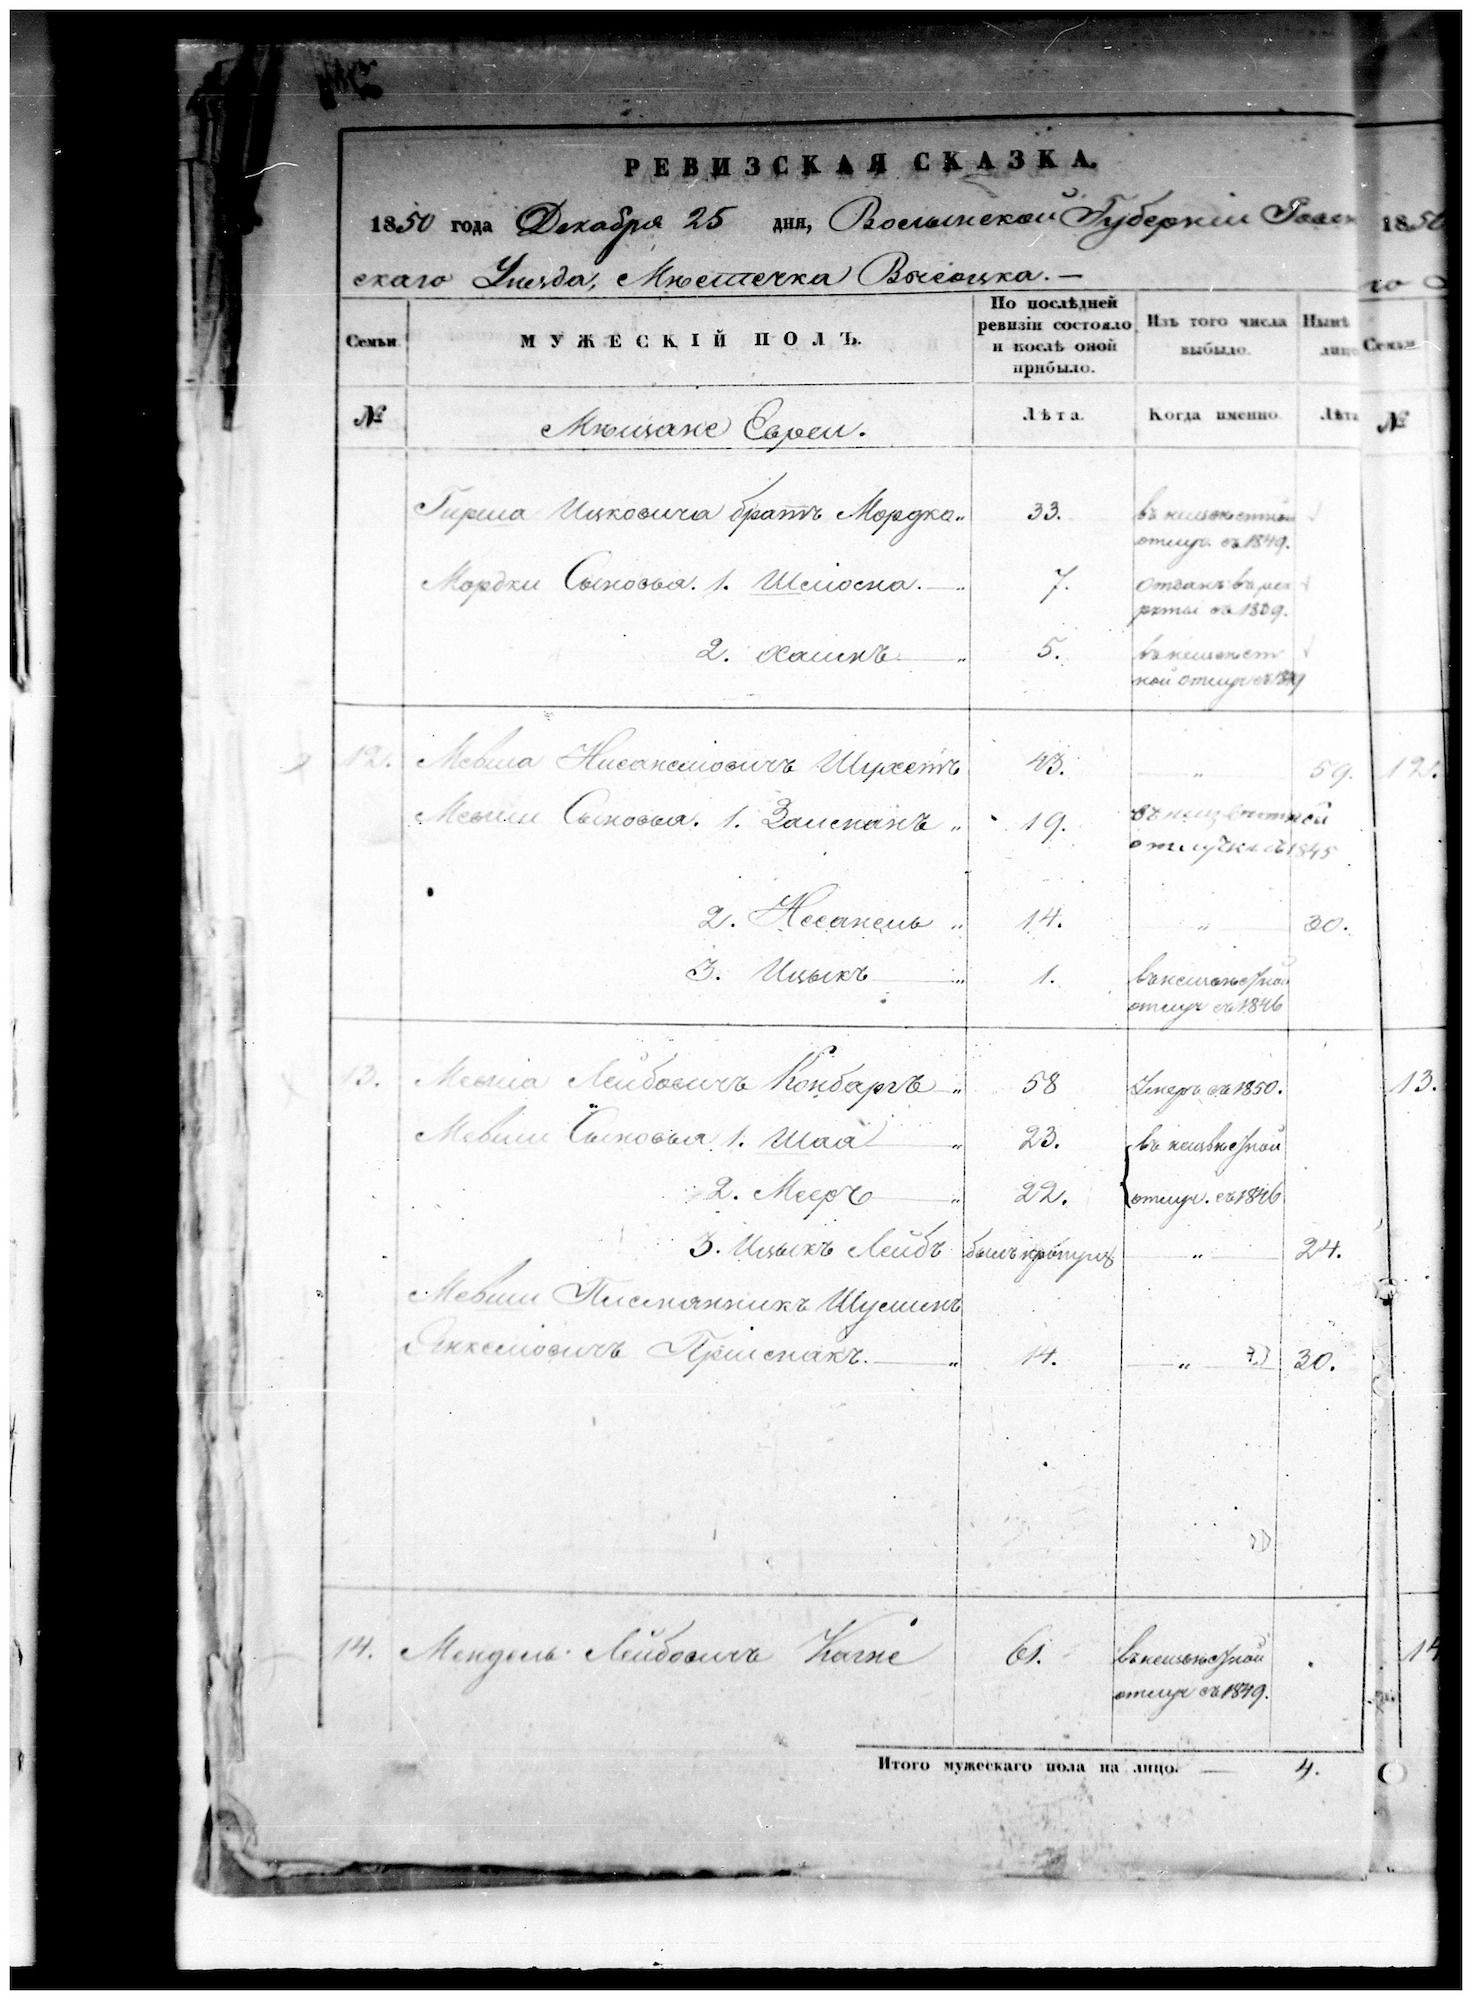 РЕВИЗСКАЯ СКАЗКА.
1850 года Декабря 25 дня, Волынской Губерніи Ровен
скаго Уезда, Мѣстечка Высоцка. —
Семьи.
МУЖЕСКІЙ ПОЛЪ.
По послѣдней ревизіи состояло и послѣ оной прибыло.
Изъ того числа выбыло.
Нынѣ лицо
№
Мѣщане Евреи.
Лѣта.
Когда именно.
Лѣта
Гирша Ицковича братъ Мордко „ 33. въ неизвѣстной
отлуч. съ 1849.
Мордки Сыновья. 1. Шліома. — „ 7. отданъ въ рек
руты въ 1839.
2. Хаимъ — „ 5. въ неизвѣст
ной отлуч съ 1849
12. Мевша Нисанеліовичъ Шухетъ 43. „ 59.
Мевши Сыновья. 1. Залменъ „ 19. въ неизвѣстной
отлучки съ 1845
2. Несанель „ 14. „ 30.
3. Ицыкъ — „ 1. въ неизвѣстной
отлуч съ 1846
13. Мевша Лейбовичъ Конбаргъ „ 58 Умеръ въ 1850.
Мевши Сыновья 1. Шая — „ 23. въ неизвѣстной
2. Мееръ — „ 22. отлуч. съ 1846
3. Ицыкъ Лейбъ былъ пропущ. „ 24.
Мевши Племянникъ Шулимъ
Янкеліовичъ — „ 14. „ 30.
14. Мендель Лейбовичъ 61. въ неизвѣстной
отлуч съ 1849.
Итого мужескаго пола на лицо. — 4.
1850
го
Семьи
№
12.
13.
14